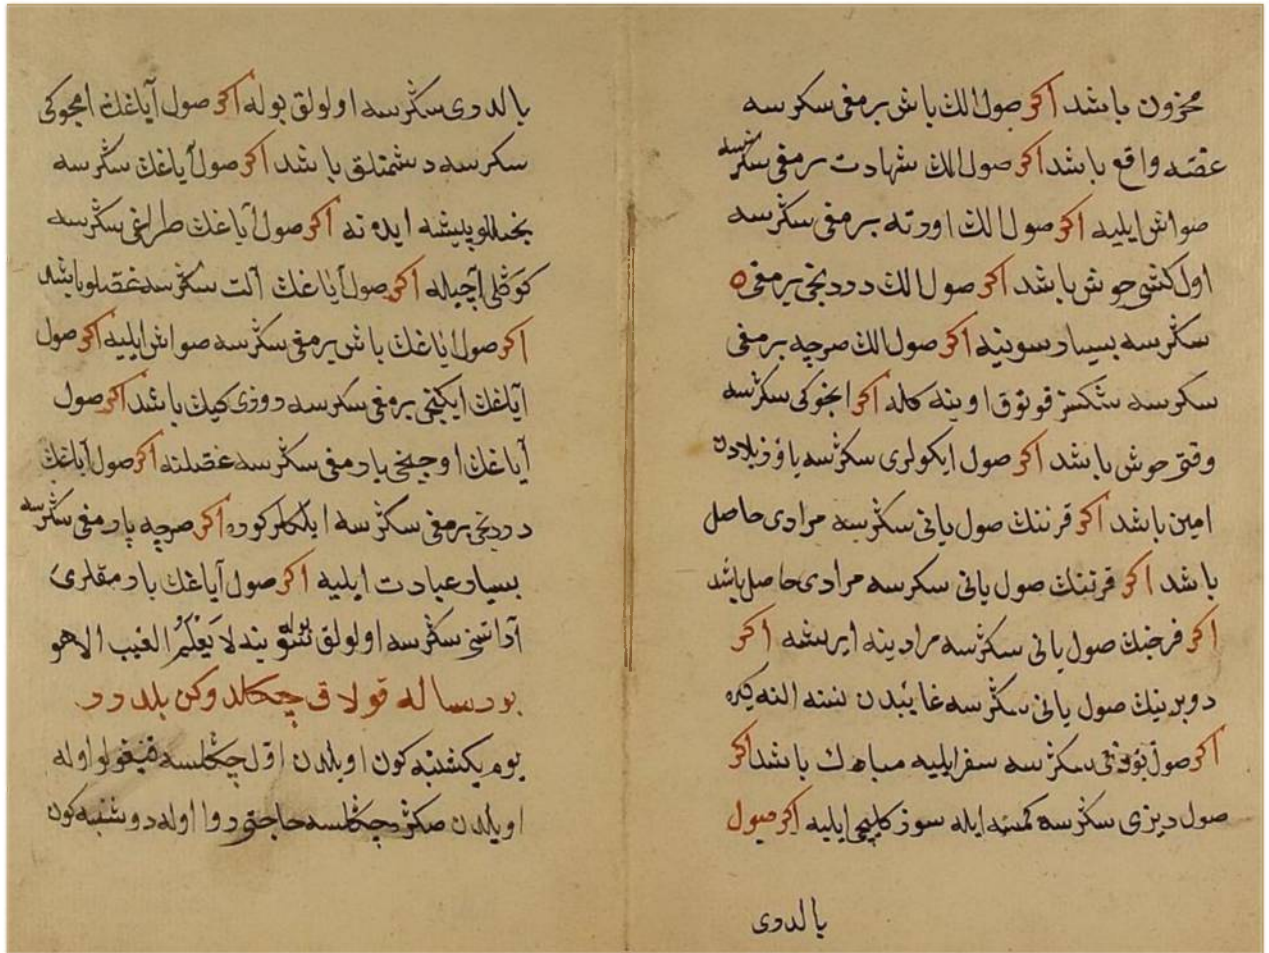 محزون باشد اکر صول الك باش برمغی سکرسه
غصّه واقع باشد اکر صول الك شهادت برمغی سکرسه
صواش ایلیه اکر صول الك اورته برمغی سكرسه
اول کشی خوش باشد اکر صول الك دردنجی برمغی
سكرسه بسیار سوینه اکر صول الك صرچه برمغی
سكرسه قونوق اوینه کله اکر انجوکی سكرسه
وقتی خوش باشد اکر صول ایکولری سكرسه یاوز بلادن
امین باشد اکر قرننك صول یانی سكرسه مرادی حاصل
باشد اکر قرننك صول یانی سکرسه مرادی حاصل باشد
اکر فرجنك صول یانی سكرسه مرادینه ایریشه اکر
دوبرینك صول یانی سكرسه غایبدن نسنه النه کیره
اکر صول سكرسه سفر ایلیه مبارك باشد اکر
صول دیزی سكرسه کمسنه ایله سوز کلیجی ایلیه اکر صول
بالدوی
بالدوی سكرسه اولولق بوله اکر صول آیاغك انجوکی
سکرسه دشمنلق باشد اکر صول آیاغك سكرسه
پیشه ایدنه اکر صول آیاغك طرانی سكرسه
کوکلی آچیله اکر صول آیاغك آلت سكرسه غصّلو باشد
اکر صول ایاغك باش برمغی سكرسه صواش ایلیه اکر صول
آیاغك ایکنجی برمغی سكرسه روزی کیك باشد اکر صول
آیاغك اوچنجی بارمغی سكرسه غصّلنه اکر صول آیاغك
دردنجی برمغی سكرسه ایلکلر کوره اکر صرچه پارمغی سكرسه
بسیار عبادت ایلیه اکر صول آیاغك بارمقلری
آراسی سكرسه اولولق بوله لا یَعْلَمُ الغیب الا هو
بو رساله قولاق چکلدوکن بلدرر
یوم یکشنبه کون اویلدن اوّل چكلسه قیغولو اوله
اویلدن صكر چكلسه حاجتی روا اوله دوشنبه کون